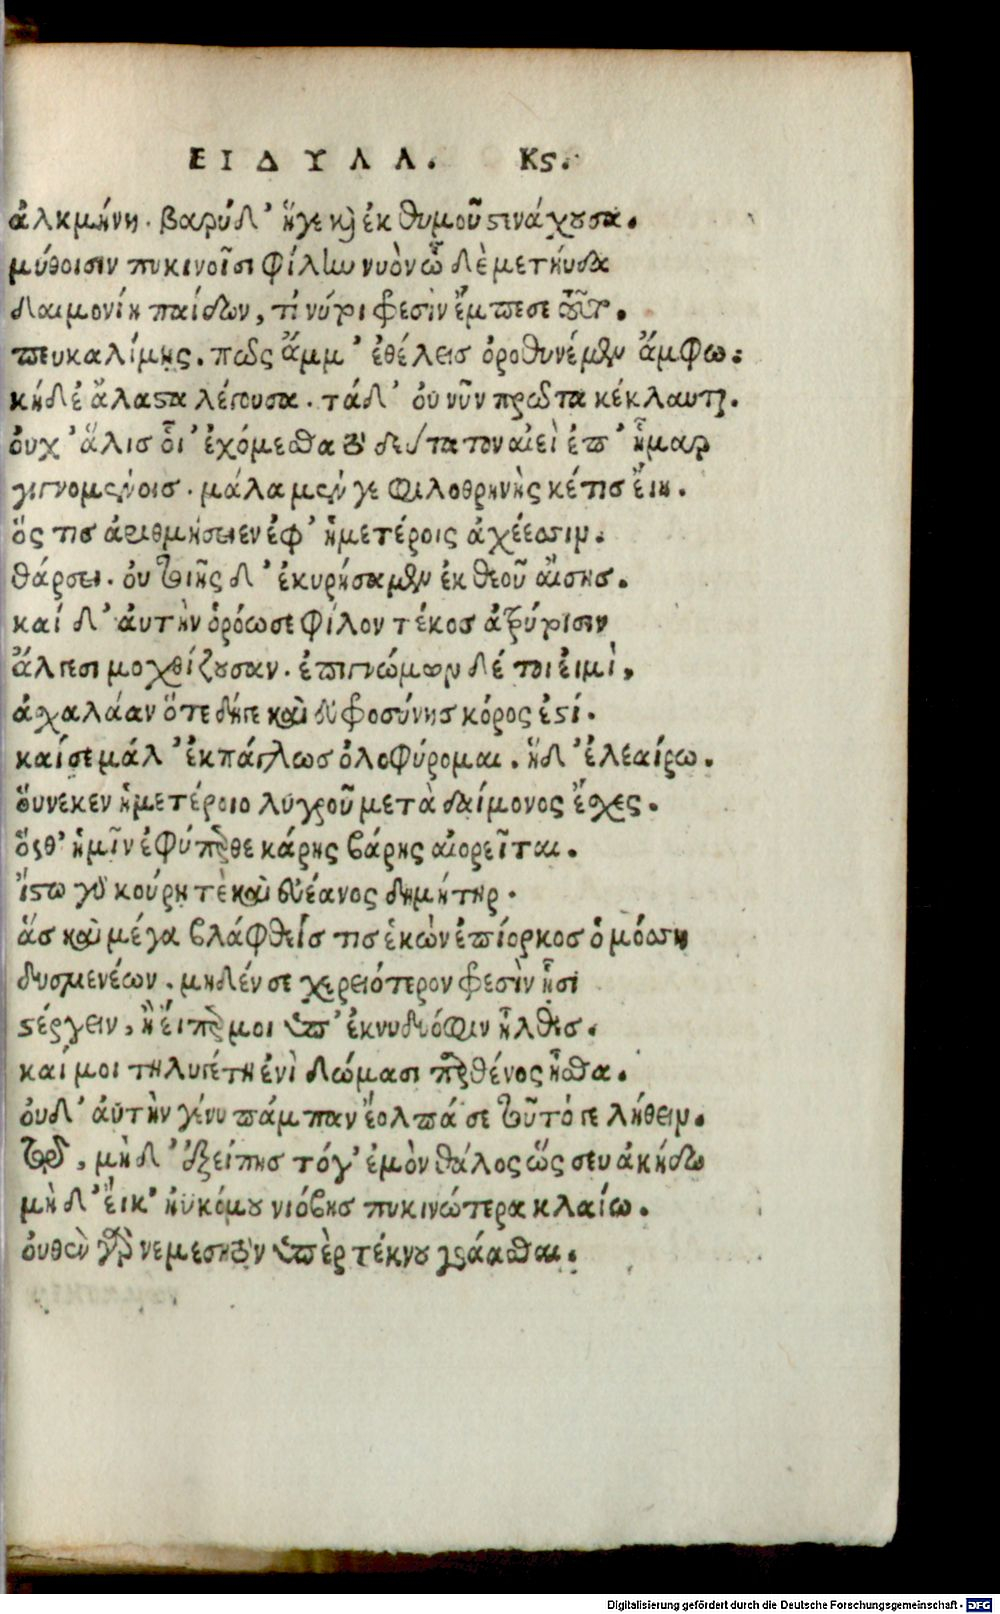 ΕΙΔΥΛΛ. Κϛ.
ἀλκμήνη. βαρύδ' ἥγε κὶ ἐκ θυμοῦ ϛινάχουσα.
μύθοισιν πυκινοῖσι φίλην νυὸν ὧ δὲ μετηύδα
δαιμονίη παίδων, τί νύτοι φρεσὶν ἔμπεσε τοῦτο.
πευκαλίμης. πῶς ἄμμ' ἐθέλεισ ὀροθυνέμεν ἄμφω.
κηδέ' ἄλαϛα λέγουσα. τάδ' οὐ νῦν πρῶτα κέκλαυται.
ὀυχ' ἅλισ οἷ' ἐχόμεσθα τὸ δεύτατον αἰεὶ ἐπ' ἦμαρ
γιγνομένοισ. μάλα μέν γε φιλοθρηνὴς κέ τισ ἔιη.
ὅς τισ ἀριθμήσειεν ἐφ' ἡμετέροις ἀχέεσσιν.
θάρσει. ὀυ τοιῆς δ' ἐκυρήσαμεν ἐκ θεοῦ ἄισησ.
καί δ' ἀυτὴν ὁρόωσε φίλον τέκοσ ἀτρύτοισιν
ἄλγεσι μοχθίζουσαν. ἐπιγνώμων δέ τοι ἐιμὶ,
ἀχαλάαν ὅτε δήγε καὶ εὐφροσύνησ κόρος ἐϛί.
καί σε μάλ' ἐκπάγλωσ ὀλοφύρομαι. ἠδ' ἐλεαίρω.
ὅυνεκεν ἡμετέροιο λυγροῦ μετὰ δαίμονος ἔσχες.
ὅσθ' ἡμῖν ἐφύπερθε κάρης βάρης αἰορεῖται.
ἴϛω γὰρ κούρη τὲ καὶ εὐέανος δημήτηρ.
ἅσ καὶ μέγα βλάφθείσ τισ ἑκὼν ἐπίορκοσ ὁμόσση
δυσμενέων. μηδέν σε χερειότερον φρεσὶν ᾗσι
ϛέργειν, ἢ ἐίπερ μοι ὑπ' ἐκ νηδυόφιν ἦλθεσ.
καί μοι τηλυγέτη ἐνὶ δώμασι παρθένος ἦσθα.
ὀυδ' ἀυτήν γένυ πάμπαν ἔολπά σε τοῦτό γε λήθειν.
τῷ, μὴ δ' ἐξείπησ τόγ' ἐμὸν θάλος ὥς σευ ἀκήδω
μὴ δ' ἔικ' ἠϋκόμου νιόβησ πυκινώτερα κλαίω.
ὀυθὲν γὰρ νεμεσητὸν ὑπὲρ τέκνου γοάασθαι.
Digitalisierung gefördert durch die Deutsche Forschungsgemeinschaft - DFG